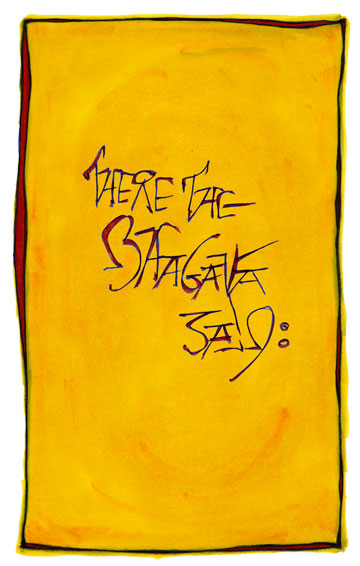 THERE THE
BHAGAVA
SAID: